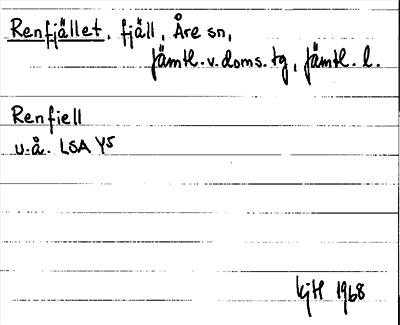 Renfjället, fjäll, Åre sn,
Jämtl.v.doms.tg, Jämtl. l.
Renfiell
u.å. LSA Y5
KjH 1968